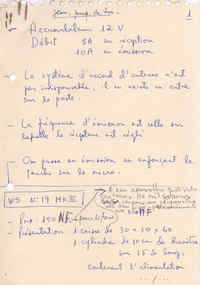 1
- Accumulateur 12 V
Débit 5A en réception
10A en émission
- Le système d'accord d'antenne n'est
pas indispensable, il en existe un autre
sur le poste.
- La fréquence d'émission est celle sur
laquelle le récepteur est réglé
- On passe en émission en enfonçant la
touche sur le micro.
WS N° 19 MK III
- Prix: 150 NF
- Présentation 1 caisse de 30 x 10 x 60
1 cylindre de 10 cm de diamètre
sur 15 de long
contenant l'alimentation
.../...